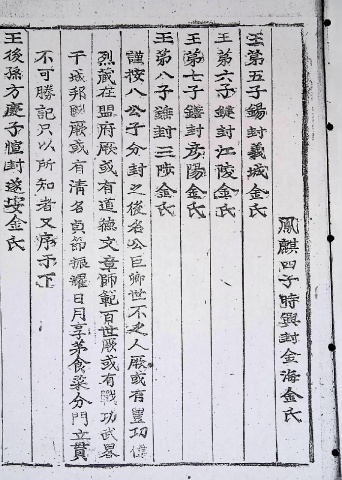 鳳麒四子時興封金海金氏
王第五子錫封義城金氏
王第六子鍵封江陵金氏
王第七子鐥封彦陽金氏
王第八子錘封三陟金氏
謹按八公子分封之後名公巨卿世不乏人厥或有豊功偉
烈藏在盟府厥或有道德文章師範百世厥或有戰功武畧
干城邦國厥或有清名貞節振耀日月享茅食菜分門立貫
不可勝記只以所知者又序于下
王後孫方慶子恒封遂安金氏